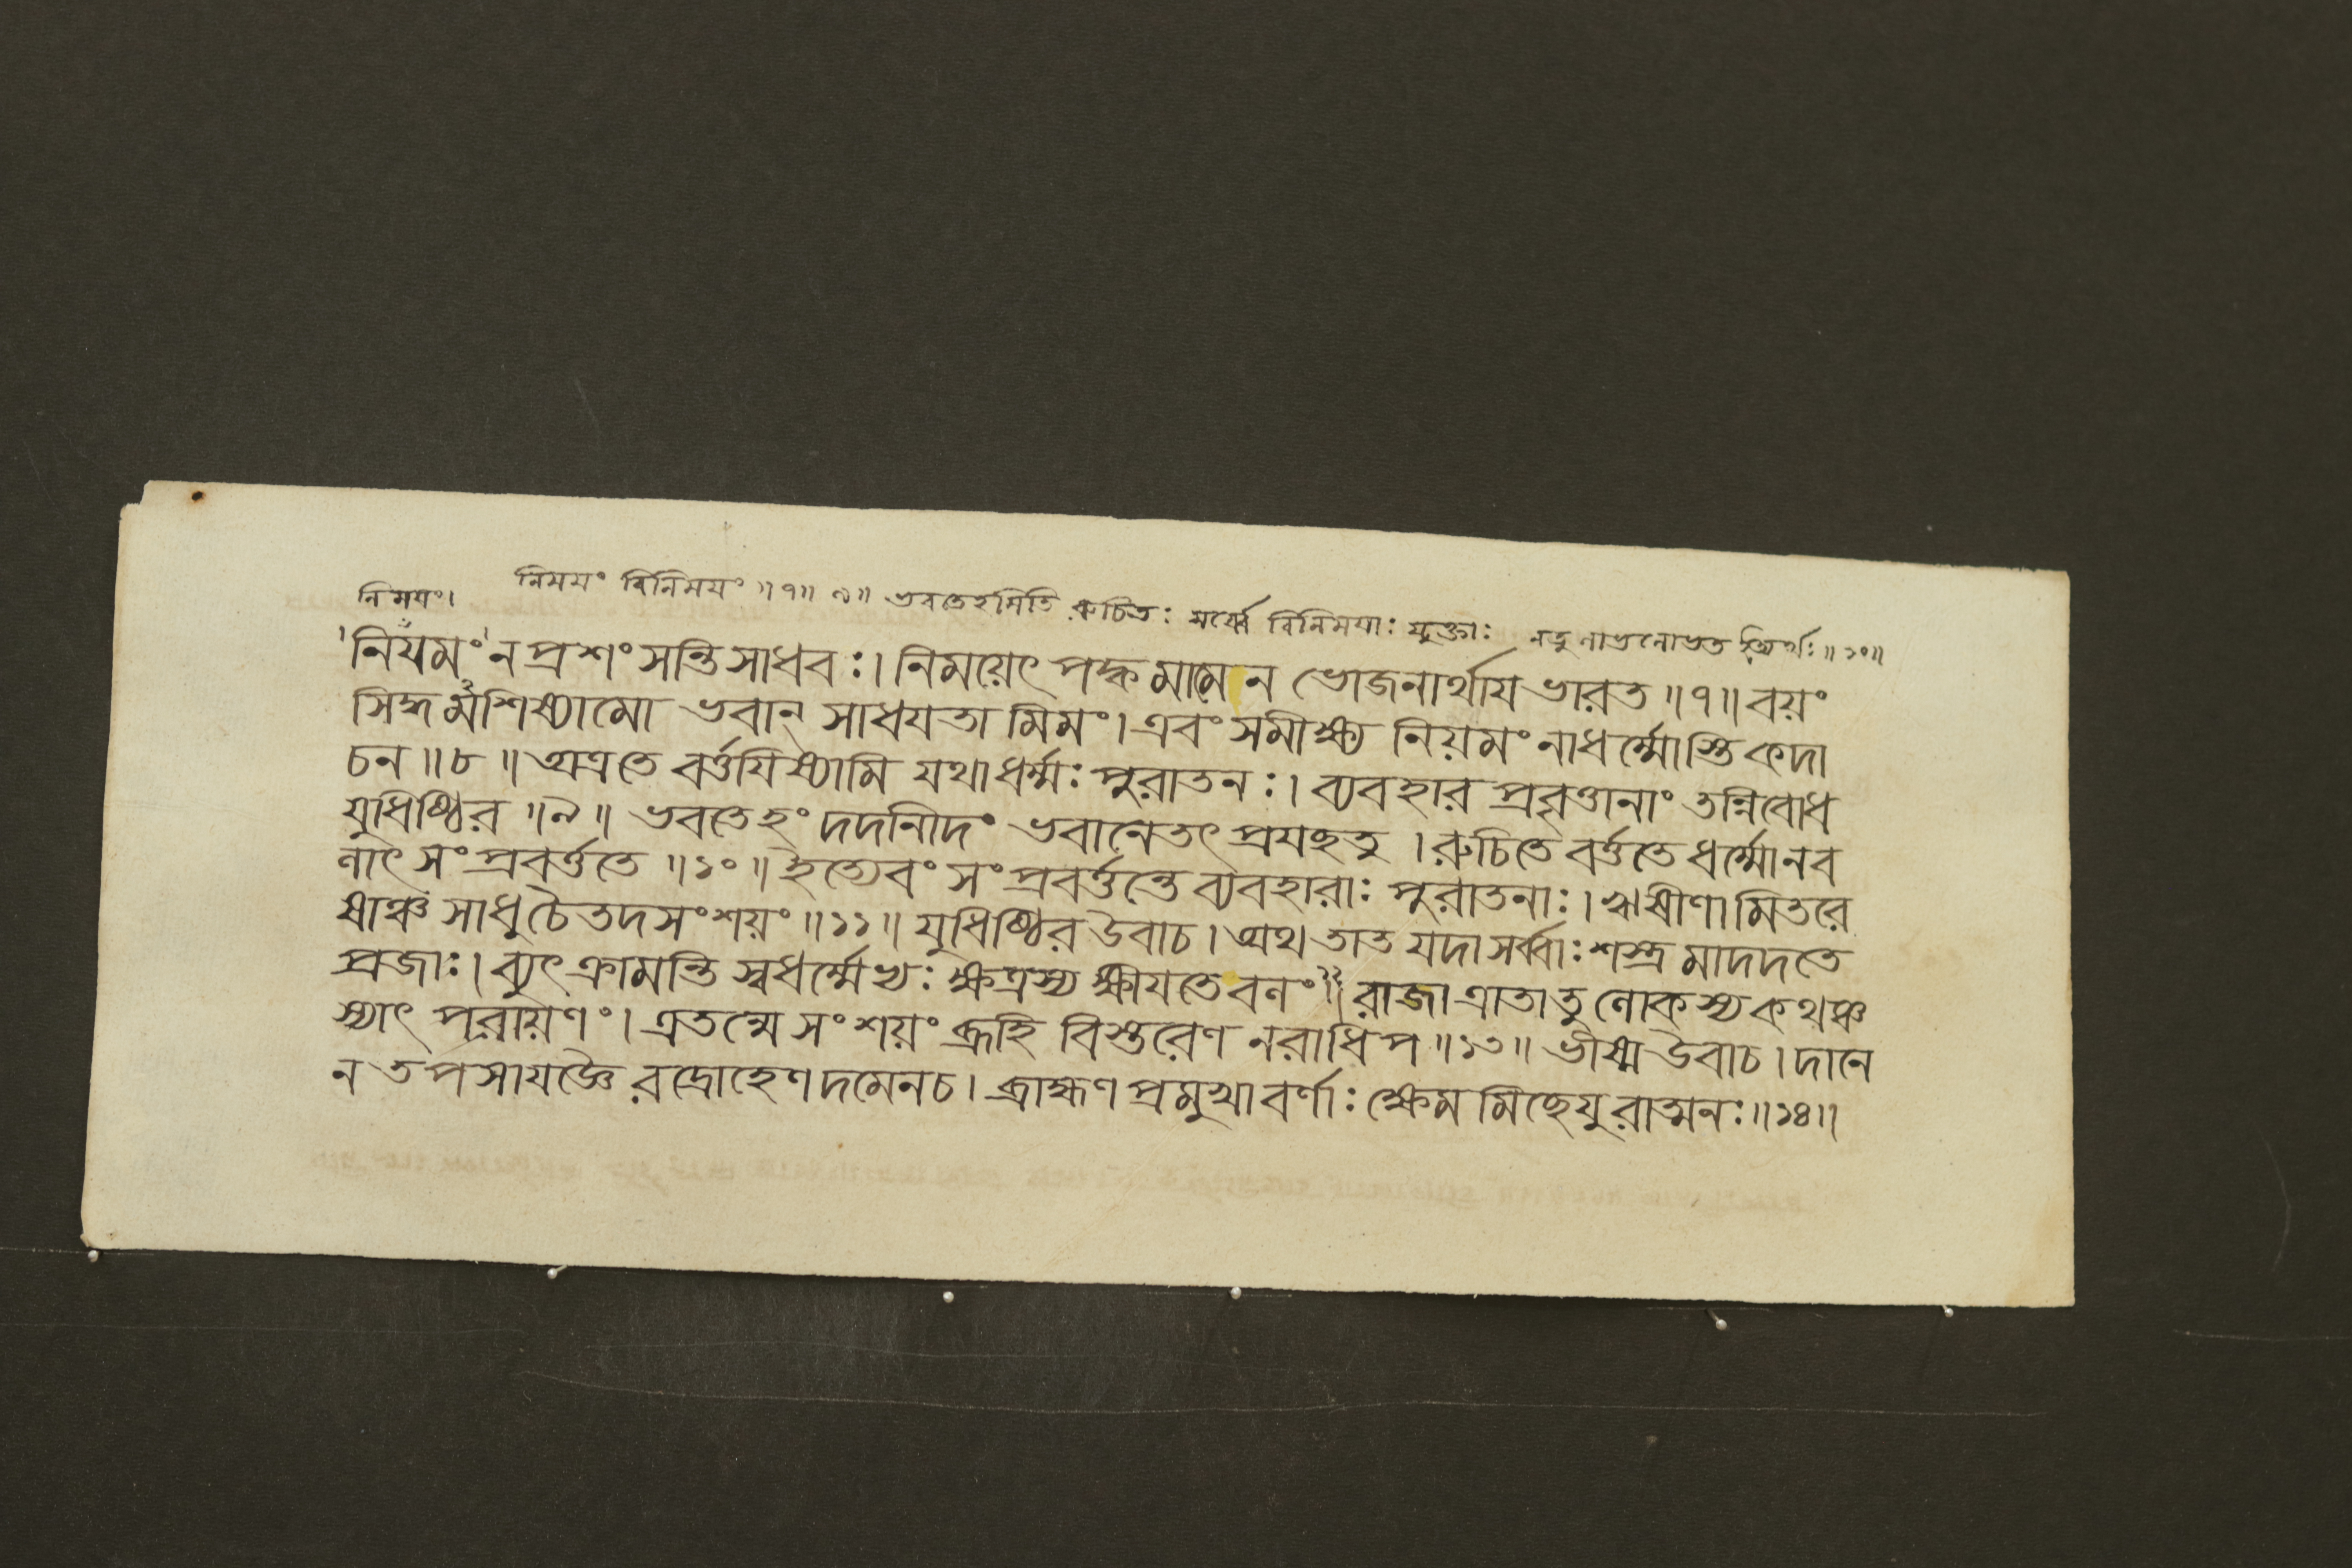 নিময়ং। নিময়ং বিনিময়ং ॥৭॥ ৯॥ ভবতেহমিতি রুচিতঃ সর্ব্বো বিনিময়াঃ যুক্তাঃ নতু
নিয়মং ন প্রশংসন্তি সাধবঃ। নিময়েৎ পক্বমামেন ভোজনার্থায ভারত ॥৭॥ বয়ং
সিদ্ধমশিষ্যামো ভবান্ সাধযতামিমং। এবং সমীক্ষ্য নিয়মং নাধর্ম্মোস্তি কদা
চন ॥৮॥ অত্র তে বর্ত্তযিষ্যামি যথা ধর্ম্মঃ পুরাতনঃ। ব্যবহার প্রবৃত্তানাং তন্নিবোধ
যুধিষ্ঠির ॥৯॥ ভবতেহং দদনীদং ভবানেতৎ প্রযচ্ছতু। রুচিতে বর্ত্ততে ধর্ম্মো নব
লাৎ সংপ্রবর্ত্ততে ॥১০॥ ইত্যেবং সংপ্রবর্ত্তন্তে ব্যবহারাঃ পুরাতনাঃ। ঋষীণামিতরে
ষাঞ্চ সাধু চৈতদসংশয়ং ॥১১॥ যুধিষ্ঠির উবাচ। অথ তাত যদা সর্ব্বাঃ শস্ত্রমাদদতে
প্রজাঃ। ব্যুৎক্রামন্তি স্বধর্ম্মেভ্যঃ ক্ষত্রস্য ক্ষীযতে বলং ॥১২॥ রাজা ত্রাতা তু লোকস্য কথঞ্চ
স্যাৎ পরায়ণং। এতন্মে সংশয়ং ব্রূহি বিস্তরেণ নরাধিপ ॥১৩॥ ভীষ্ম উবাচ। দানে
ন তপসা যজ্ঞৈরদ্রোহেণ দমেন চ। ব্রাহ্মণপ্রমুখা বর্ণাঃ ক্ষেমমিচ্ছেযুরাত্মনঃ ॥১৪॥